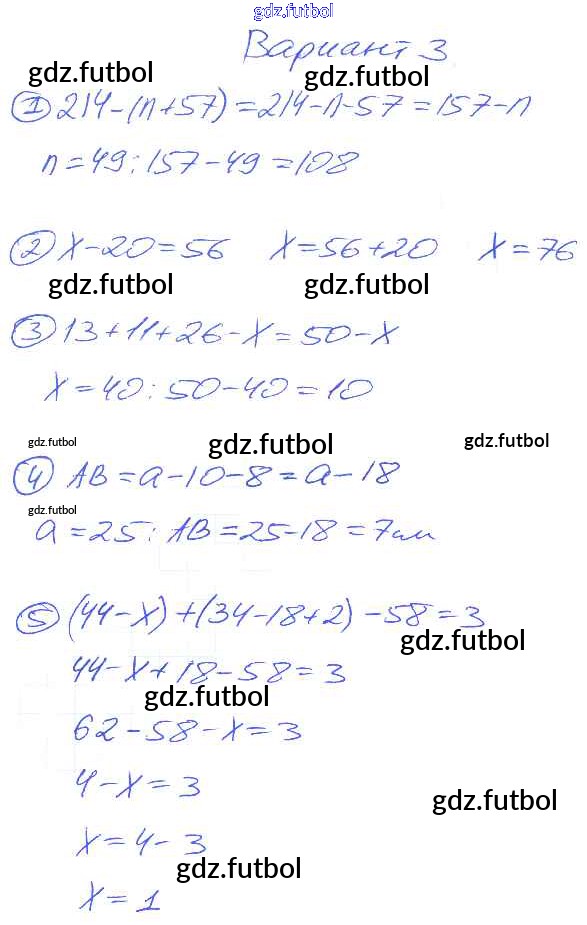 gdz.futbol
Вариант 3
gdz.futbol gdz.futbol
① 214-(n+57)=214-n-57=157-n
n=49: 157-49=108
② x-20=56 x=56+20 x=76
gdz.futbol gdz.futbol
③ 13+11+26-x=50-x
x=40: 50-40=10
gdz.futbol gdz.futbol gdz.futbol
④ AB=a-10-8=a-18
gdz.futbol
a=25: AB=25-18=7см
⑤ (44-x)+(34-18+2)-58=3
gdz.futbol
44-x+18-58=3
gdz.futbol
62-58-x=3
4-x=3
gdz.futbol
x=4-3
gdz.futbol
x=1